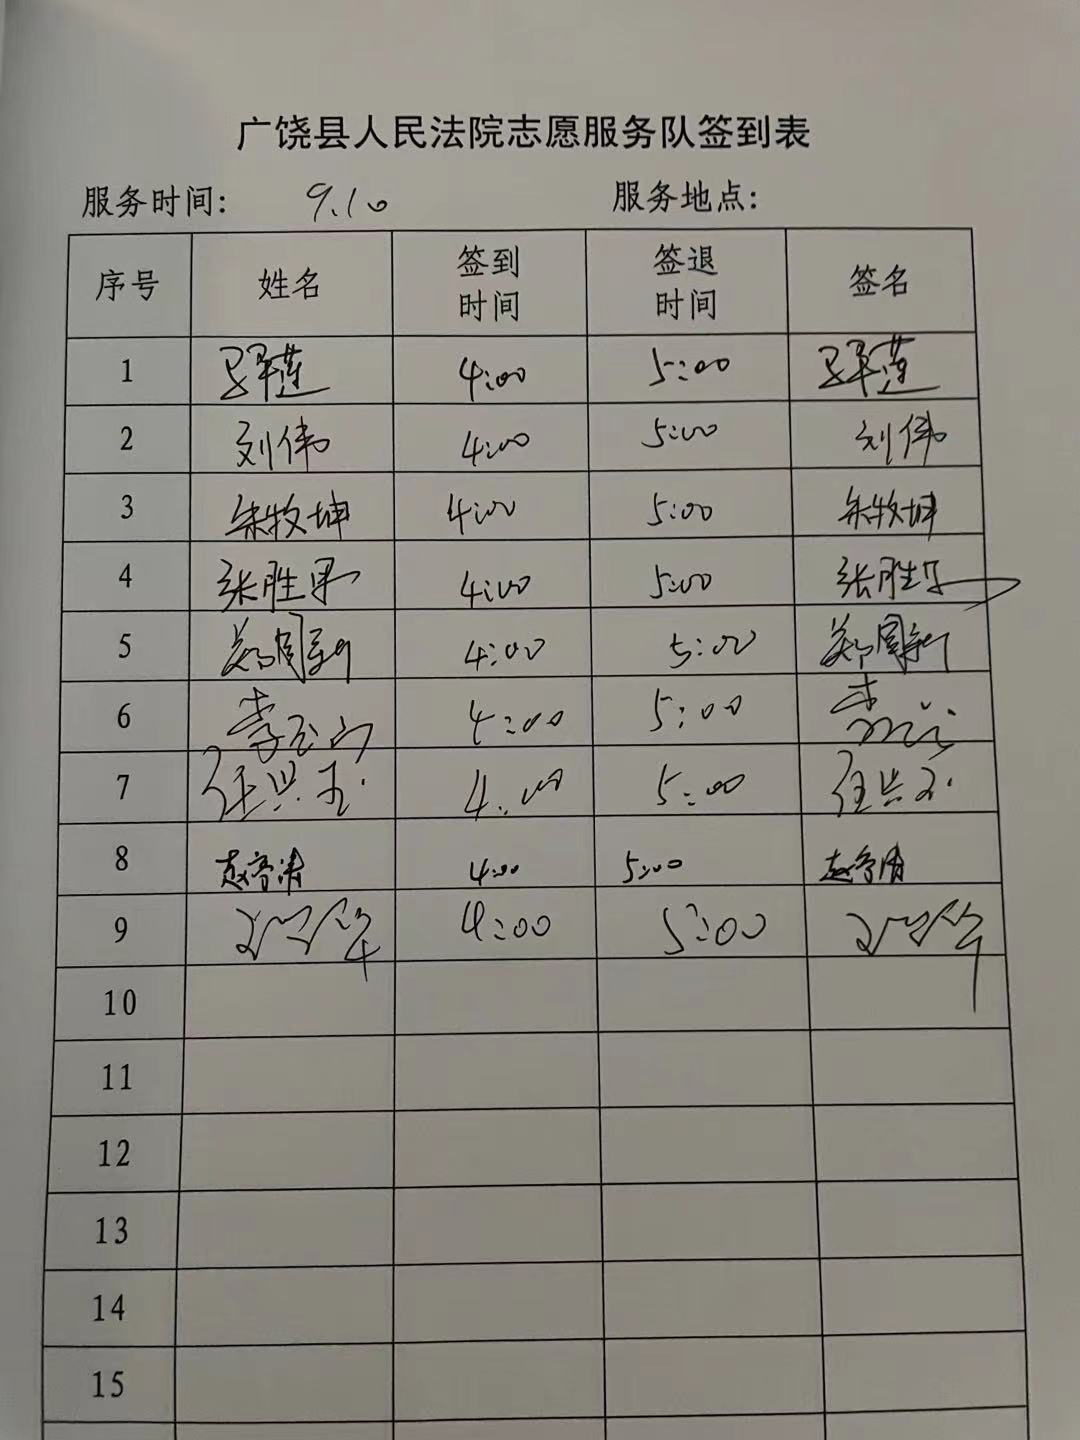 广饶县人民法院志愿服务队签到表
服务时间: 9.10 服务地点:
序号 姓名 签到时间 签退时间 签名
1 4:00 5:00
2 刘伟 4:00 5:00 刘伟
3 朱牧坤 4:00 5:00 朱牧坤
4 张胜军 4:00 5:00 张胜军
5 郑国新 4:00 5:00 郑国新
6 李玉 4:00 5:00 李
7 任兴玉 4:00 5:00 任兴玉
8 赵 清 4:00 5:00 赵 清
9 4:00 5:00
10
11
12
13
14
15